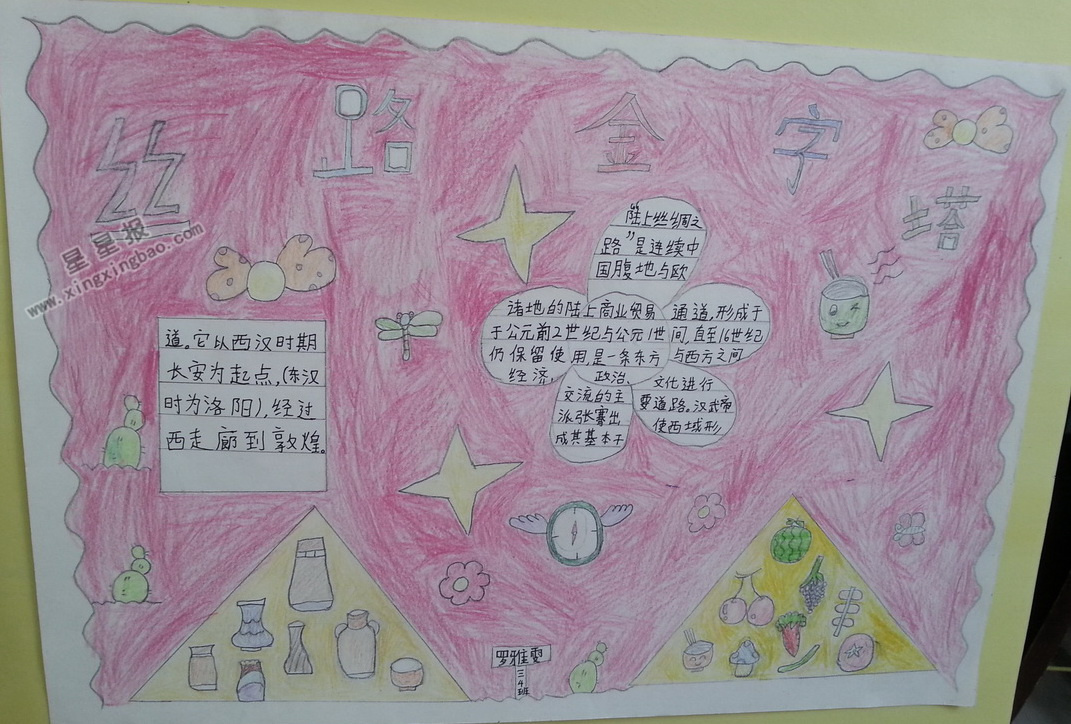 丝路金字塔
星星报
www.xingxingbao.com
"陆上丝绸之
路"是连续中
国腹地与欧
诸地的陆上商业贸易通道,形成于
于公元前2世纪与公元1世间,直至16世纪
仍保留使用,是一条东方与西方之间
经济,政治、文化进行
交流的主要道路。汉武帝
派张骞出使西域形
成其基本干
道。它以西汉时期
长安为起点,(东汉
时为洛阳),经过
西走廊到敦煌。
罗雅雯
三4班